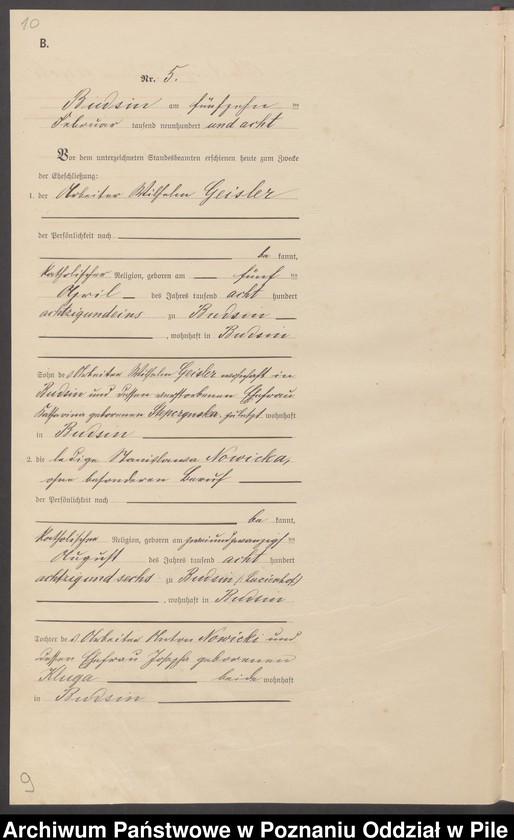 10
B.
Nr. 5.
Budsin am fünfzehn ten
Februar tausend neunhundert und acht
Vor dem unterzeichneten Standesbeamten erschienen heute zum Zwecke
der Eheschließung:
1. der Arbeiter Wilhelm Geisler
der Persönlichkeit nach
be kannt,
katholischer Religion, geboren am fünf ten
April des Jahres tausend acht hundert
achtzigundeins zu Budsin
, wohnhaft in Budsin
Sohn des Arbeiter Wilhelm Geisler wohnhaft in
Budsin und dessen verstorbenen Ehefrau
Katharina geborenen zuletzt wohnhaft
in Budsin
2. die ledige Stanislawa Nowicka,
ohne besonderen Beruf
der Persönlichkeit nach
be kannt,
katholischer Religion, geboren am zweiundzwanzigs ten
August des Jahres tausend acht hundert
achtzigundsechs zu Budsin
, wohnhaft in Budsin
Tochter des Arbeiter Anton Nowicki und
dessen Ehefrau Josepha geborenen
Kluga beide wohnhaft
in Budsin
9
Archiwum Państwowe w Poznaniu Oddział w Pile